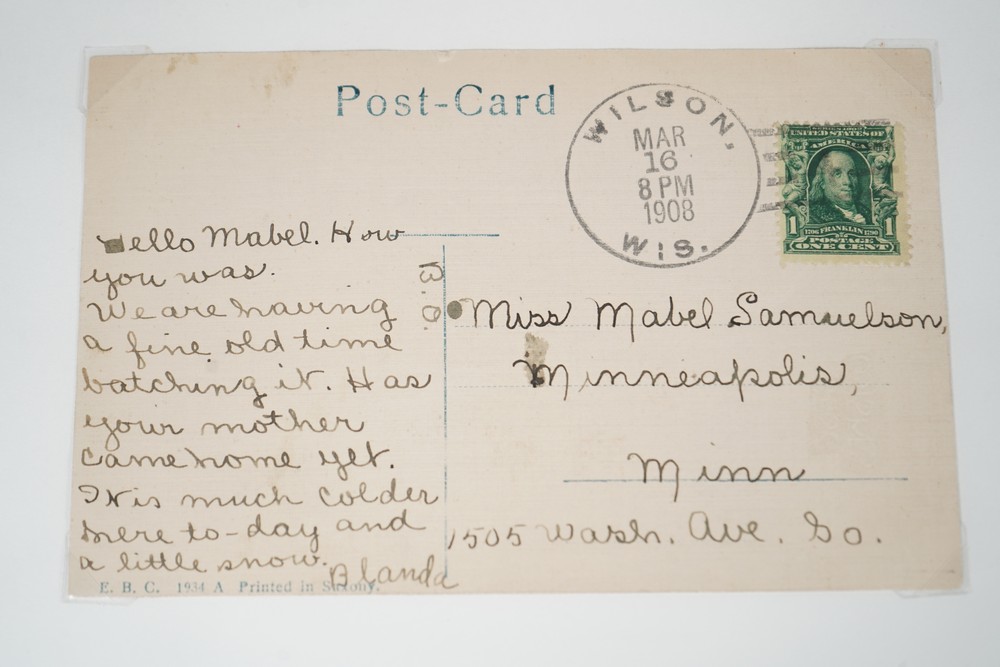 Post-Card
WILSON,
MAR
16
8 PM
1908
WIS.
SERIES 1902
UNITED STATES OF
AMERICA
1 1
1706 FRANKLIN 1790
POSTAGE
ONE CENT
Hello Mabel. How
you was.
We are having
a fine old time
batching it. Has
your mother
came home yet.
It is much colder
here to-day and
a little snow.
Blanda
W. O.
Miss Mabel Samuelson,
Minneapolis,
Minn
1505 Wash. Ave. So.
E. B. C. 1934 A Printed in Saxony.